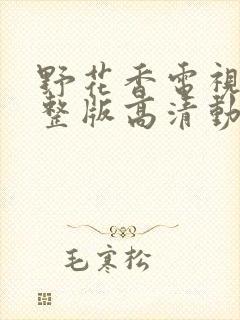 野花香電視
整版高清動
毛寒松